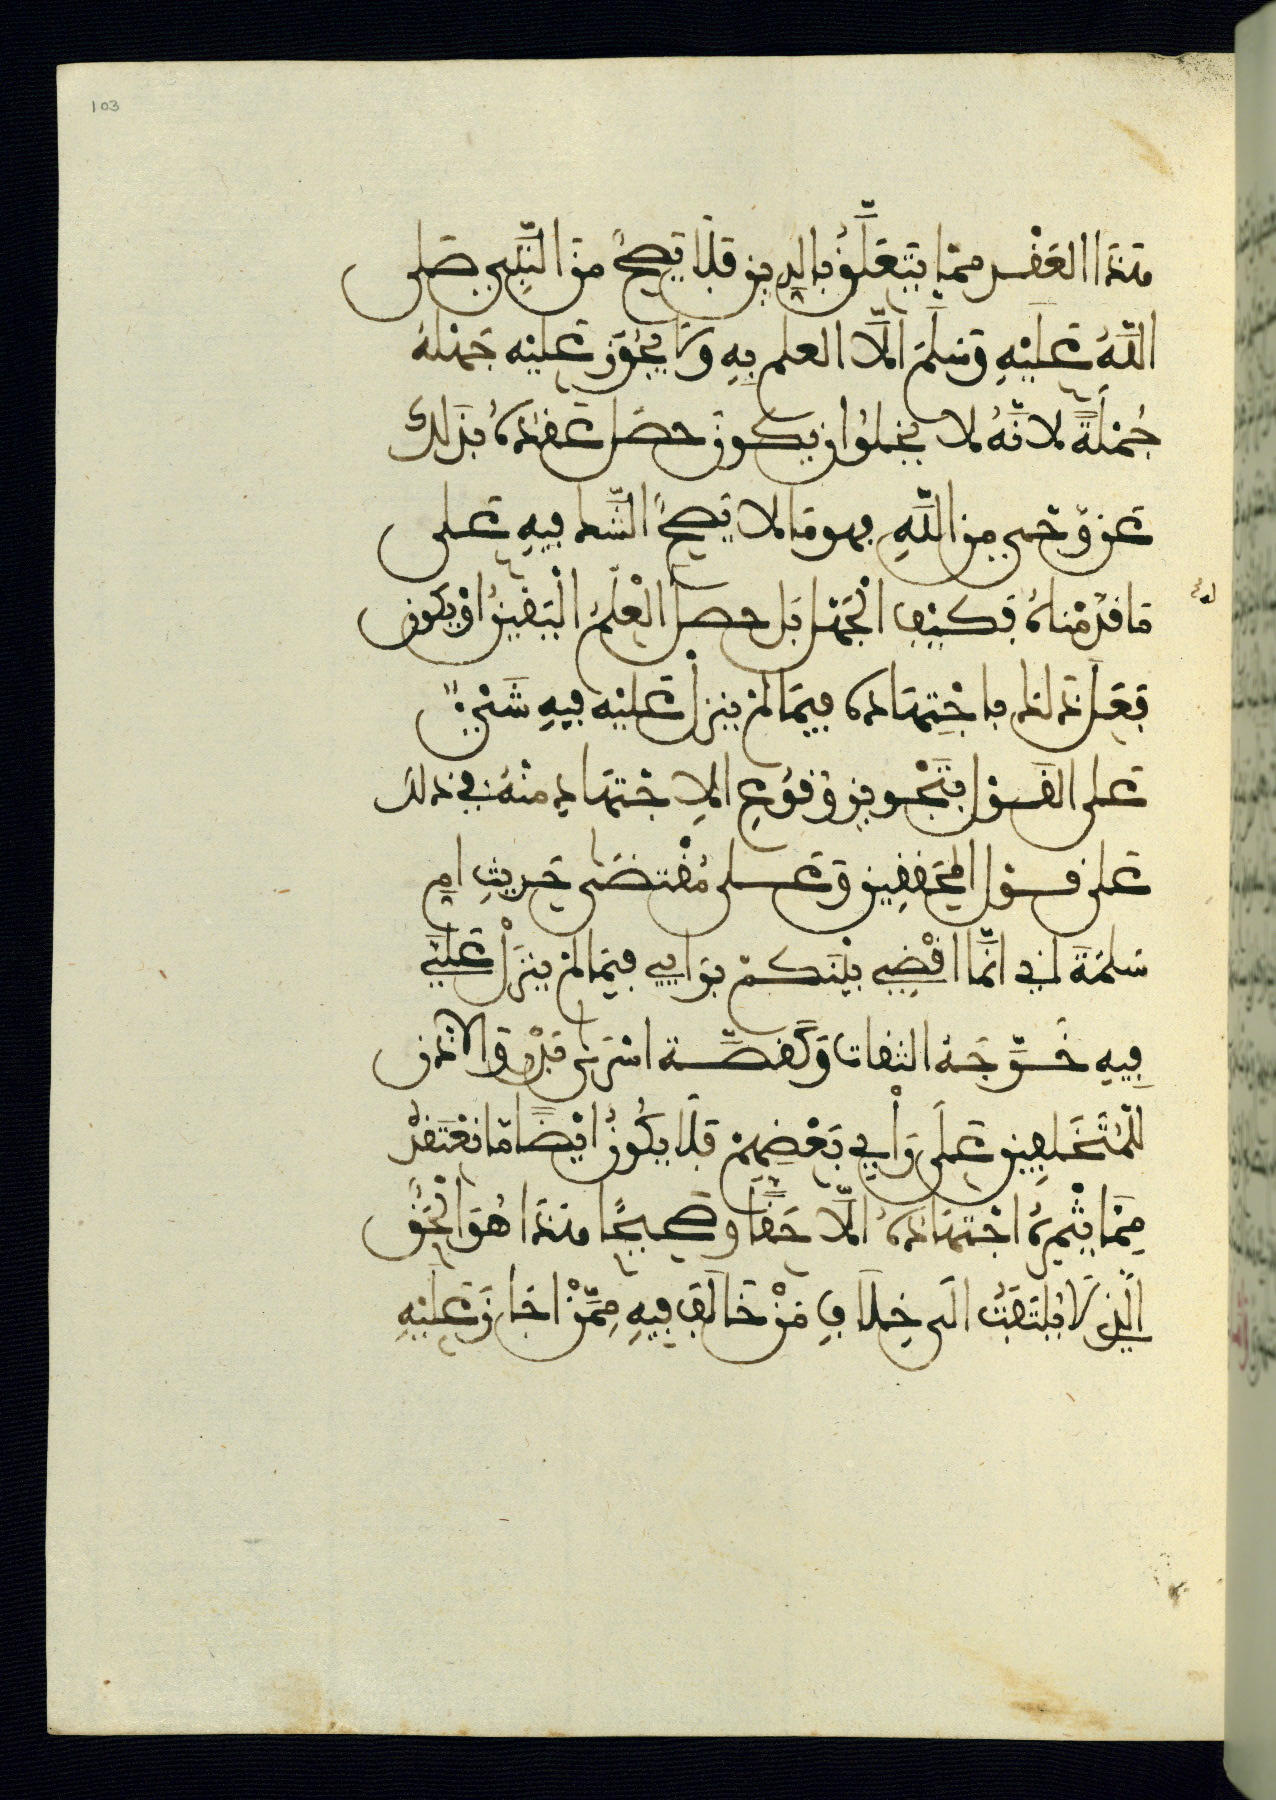 103
هَذَا العَقْد ممَّا يَتَعَلَّقُ بالدين فلَا يَصِحُّ مِنَ النَّبِيِّ صَلى
اللَّهُ عَلَيْهِ وَسَلَّمَ اِلَّا العلم بِهِ وَلَا يَجُوزُ عَلَيْهِ جَهْلُهُ
جُمْلَةً لاَنَّهُ لا يخلوا ان يكون حصَل عِنْدَهُ بذَلك
عَن وَحْيٍ مِنَ اللَّهِ فهو مَا لا يَصِحُّ الشَّك فِيهِ عَلى
مَا قَدَّمْنَاهُ فَكَيْفَ الْجَهْل بَل حصل الْعِلْمُ الْيَقِينُ اوْ يَكون
فَعَلَ ذَلك بِاجْتِهَادِهِ فِيمَا لَمْ ينزل عَلَيْهِ فِيهِ شَيْءٌ
عَلى القَوْلِ بِتَجْوِيزِ وُقُوعِ الِاجْتهَادِ مِنْهُ فِي ذَلك
عَلى قول المُحَقِّقِينَ وَعَلى مُقْتَضَى حَدِيثِ ام
سَلمَةَ اني انَّمَا اقْضِي بَيْنَكُمْ برَاييِ فيمَا لمْ ينزَلْ عَلَيَّ
فِيهِ خَرَّجَهُ الثقات وَكَقصَّة اسْرَى بَدْرٍ وَالاذْن
لِلْمُتَخَلفِينَ عَلَى رَأْيِ بَعْضِهِمْ فَلَا يَكُونُ ايْضًا مَا يَعْتَقدُ
مِمَّا يُثْمِرُهُ اجْتهَادُهُ الَّا حَقًّا وصَحِيحًا هَذَا هُوَ الْحَقُّ
الَّذِي لَا يُلْتَفَتُ الَى خِلَافِ مَنْ خَالَفَ فِيهِ مِمَّنْ اجَازَ عَلَيْهِ